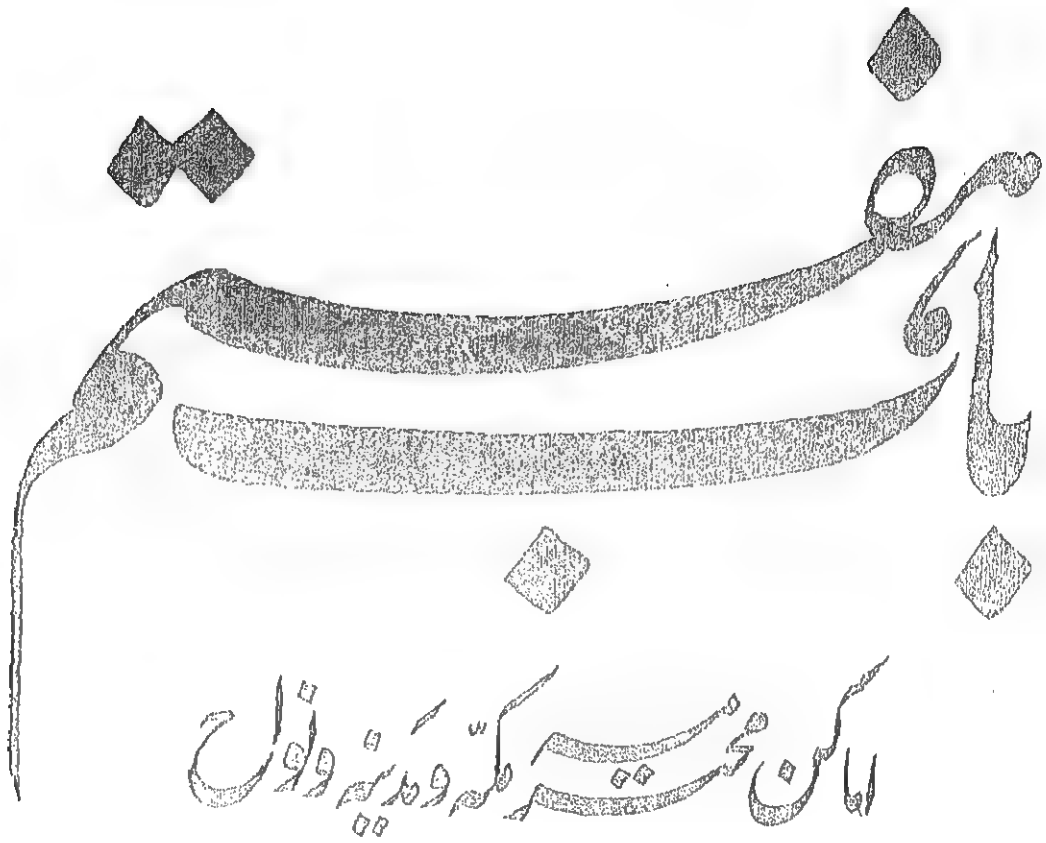 باب هفتم
اماکن محترمه مکّه و مدینه و نواح